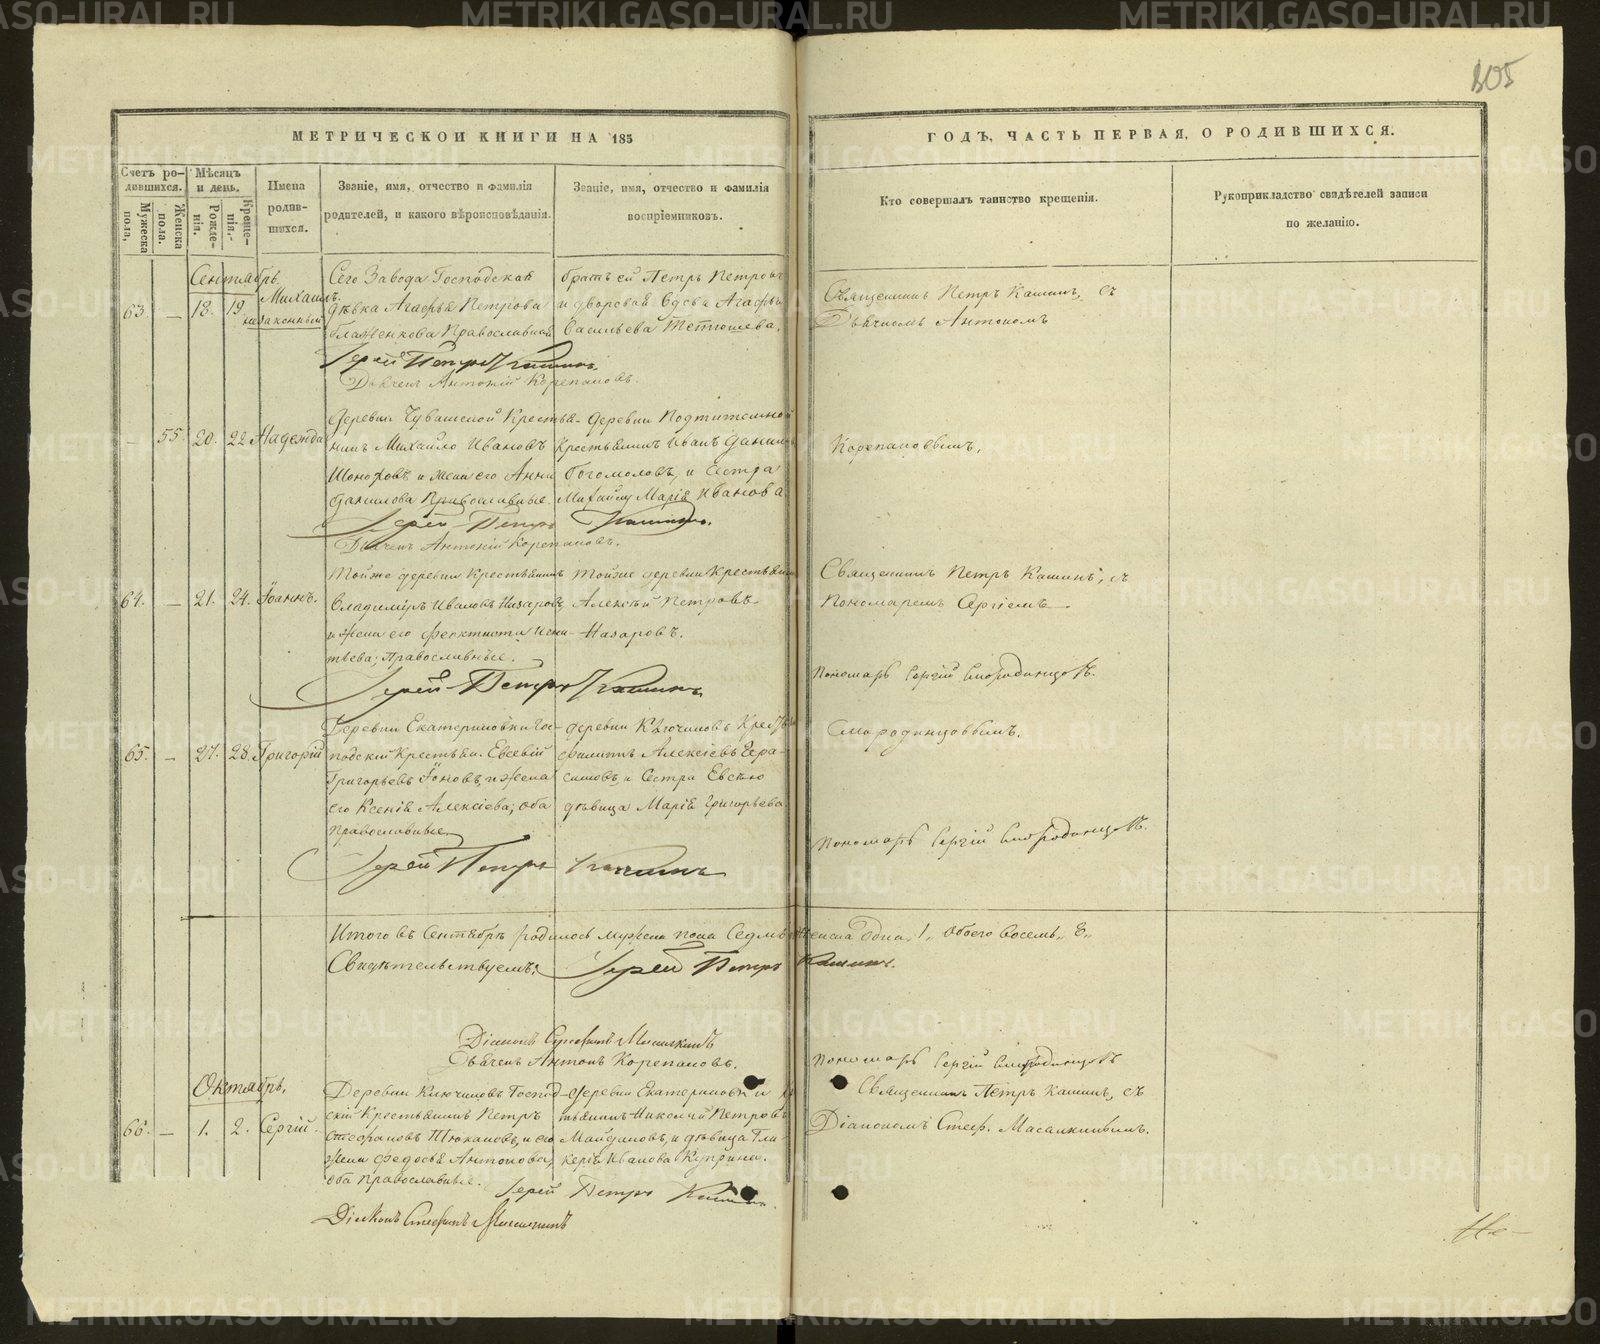 305
МЕТРИЧЕСКОИ КНИГИ НА 185
ГОДЪ, ЧАСТЬ ПЕРВАЯ, О РОДИВШИХСЯ.
Счетъ ро-
дившихся.
Мужеска
пола.
Женска
пола.
Мѣсяцъ
и день.
Рожде-
нія.
Креще-
нія.
Имена
родив-
шихся.
Званіе, имя, отчество и фамилія
родителей, и какого вѣроисповѣданія.
Званіе, имя, отчество и фамилія
воспріемниковъ.
Кто совершалъ таинство крещенія.
Рукоприкладство свидѣтелей записи
по желанію.
Сентябрь.
63. — 18. 19
Михаилъ.
незаконный
Сего Завода Господская
дѣвка Агафья Петрова
Православная
братъ ей Петръ Петровъ
и дворовая вдова Агафья
Васильева Тетюшева.
Священникъ Петръ Кашинъ, съ
Дьячкомъ Антономъ
Іерей Петръ Кашинъ.
Дьячекъ Антоній Корепановъ.
— 55. 20. 22 Надежда
Деревни Чувашской Кресть-
нинъ Михайло Ивановъ
и жена его Анна
Данилова Православные.
Деревни
Крестьянинъ Иванъ Данил
Богомоловъ, и Сестра
Михайлу Марія Иванова
Корепановымъ.
Іерей Петръ Кашинъ.
Дьячекъ Антоній Корепановъ.
64. — 21. 24. Іоаннъ.
Тойже деревни Крестьянинъ
Владиміръ Ивановъ Назаровъ
и жена его Феоктиста Игна-
тьева; Православные.
Тойже деревни Крестьянин
Алексѣй Петровъ
Назаровъ.
Священникъ Петръ Кашинъ, съ
Пономаремъ Сергіемъ
Пономарь Сергій Смородинцовъ.
Іерей Петръ Кашинъ
65. — 27. 28. Григорій
Деревни Екатериновки Гос-
подскій Крестьян. Евсевій
Григорьевъ Іоновъ, и жена
его Ксенія Алексіева; оба
Православные.
деревни Ключиковъ Крест
Алексіевъ Гера-
симовъ, и Сестра Евсѣю
дѣвица Марія Григорьева
Смородинцовымъ.
Пономарь Сергій Смородинцовъ.
Іерей Петръ Кашинъ
Итого въ Сентябрѣ родилось Мужеска пола Седмь, женска одна, 1, обоего восемь, 8,
Свидѣтельствуемъ: Іерей Петръ Кашинъ.
Діаконъ Стефанъ Масалкинъ
Дьячекъ Антонъ Корепановъ.
Пономарь Сергій Смородинцовъ
Октябрь.
66. — 1. 2. Сергій.
Деревни Ключиковъ Господ-
скій Крестьянинъ Петръ
Стефановъ Тюкановъ, и его
жена Федосья Антонова,
оба Православные.
деревни Екатериновки
тьянинъ Николай Петровъ
Майдановъ, и дѣвица Гли-
керія Иванова Куприна.
Священникъ Петръ Кашинъ, съ
Діакономъ Стеф. Масалкинымъ.
Іерей Петръ Кашинъ.
Діаконъ Стефанъ Масалкинъ
METRIKI.GASO-URAL.RU